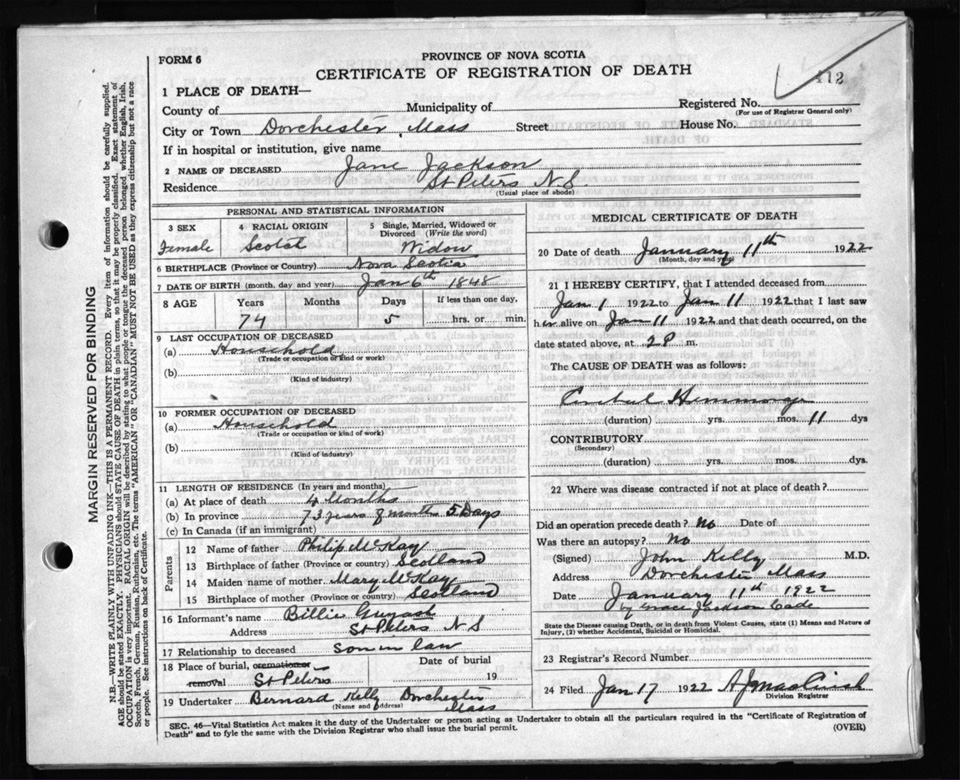 FORM 6
PROVINCE OF NOVA SCOTIA
CERTIFICATE OF REGISTRATION OF DEATH
112
1 PLACE OF DEATH—
County of Municipality of Registered No.
(For use of Registrar General only)
City or Town Dorchester, Mass Street House No.
If in hospital or institution, give name
2 NAME OF DECEASED Jane Jackson
Residence St Peters N S
(Usual place of abode)
PERSONAL AND STATISTICAL INFORMATION
3 SEX 4 RACIAL ORIGIN 5 Single, Married, Widowed or Divorced (Write the word)
Female Scotch Widow
6 BIRTHPLACE (Province or Country) Nova Scotia
7 DATE OF BIRTH (month, day and year) Jan 6th 1848
8 AGE Years Months Days If less than one day,
74 5 hrs. or min.
9 LAST OCCUPATION OF DECEASED
(a) Household
(Trade or occupation or kind or work)
(b)
(Kind of industry)
10 FORMER OCCUPATION OF DECEASED
(a) Household
(Trade or occupation or kind of work)
(b)
(Kind of industry)
11 LENGTH OF RESIDENCE (In years and months)
(a) At place of death 4 Months
(b) In province 73 years 8 month 5 Days
(c) In Canada (if an immigrant)
Parents
12 Name of father Philip McKay
13 Birthplace of father (Province or country) Scotland
14 Maiden name of mother Mary McKay
15 Birthplace of mother (Province or country) Scotland
16 Informant's name Billie
Address St Peters N S
17 Relationship to deceased son in law
18 Place of burial, cremation or removal St Peters Date of burial 19
19 Undertaker Bernard Kelly Dorchester Mass
(Name and address)
MEDICAL CERTIFICATE OF DEATH
20 Date of death January 11th 1922
(Month, day and year)
21 I HEREBY CERTIFY, that I attended deceased from
Jan 1 1922 to Jan 11 1922 that I last saw
her alive on Jan 11 1922 and that death occurred, on the
date stated above, at 2 P m.
The CAUSE OF DEATH was as follows:
(duration) yrs. mos. 11 dys
CONTRIBUTORY
(Secondary)
(duration) yrs. mos. dys.
22 Where was disease contracted if not at place of death?
Did an operation precede death? No Date of
Was there an autopsy? No
(Signed) John Kelly M.D.
Address Dorchester Mass
Date January 11th 1922
by Grace Jackson Cade
State the Disease causing Death, or in death from Violent Causes, state (1) Means and Nature of
Injury, (2) whether Accidental, Suicidal or Homicidal.
23 Registrar's Record Number
24 Filed Jan 17 1922
Division Registrar
SEC. 46—Vital Statistics Act makes it the duty of the Undertaker or person acting as Undertaker to obtain all the particulars required in the "Certificate of Registration of
Death" and to fyle the same with the Division Registrar who shall issue the burial permit. (OVER)
MARGIN RESERVED FOR BINDING
N.B.—WRITE PLAINLY WITH UNFADING INK—THIS IS A PERMANENT RECORD. Every item of information should be carefully supplied.
AGE should be stated EXACTLY. PHYSICIANS should STATE CAUSE OF DEATH in plain terms, so that it may be properly classified. Exact statement of
OCCUPATION is very important. RACIAL ORIGIN will be described by stating to what people or tongue the deceased person belonged, whether English, Irish,
Scotch, French, German, Russian, Ruthenian, etc. The terms "AMERICAN" OR "CANADIAN" MUST NOT BE USED as they express citizenship but not a race
or people. See instructions on back of Certificate.